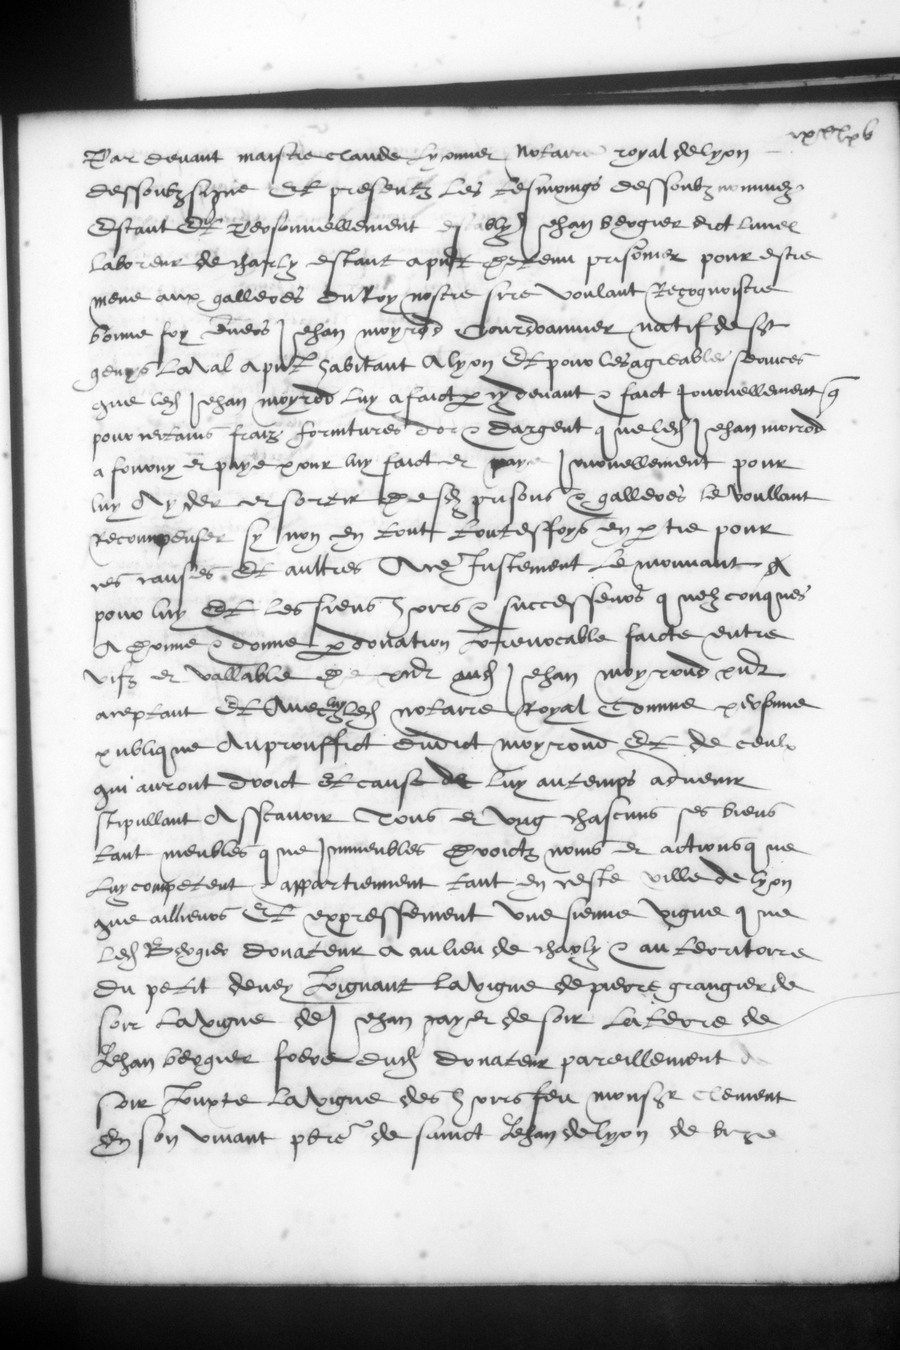 Par devant maistre claude lyonnet notaire royal de lyon
dessoubz signe Et presentz Les tesmoings dessoubz nommez
Estant Et Personnellement establyz Jehan bergier dict lunel
laboreur de charly estant a pnt detenu prisonier pour estre
mene aux galleres du Roy nostre sire voulant Recognoistre
bonne foy Envers Jehan moyrod Courdoannier natif de st
genys Laval a pnt habitant A lyon Et pour les agreables services
que led Jehan moyrod luy a faict par cy devant & faict Journellement q
pour certains fraiz fornitures d'or & d'argent que led Jehan moirod
a fourny et paye pour luy faict et paye Journellement pour
luy Ayder et sortir desd prisons & galleres le voullant
Recompenser sy non en tout toutesfoys en partie pour
ces causes Et aultres Ace Justement Le mouvant
pour luy Et les siens hoirs & successeurs quelzconques
A donne & donne par donation Irrevocable faicte entre
vifz et vallable aud Jehan moyroud pnt
aceptant Et Avec luy led notaire Royal Comme personne
publique Au prouffict dudict moyroud Et de ceulx
qui auront droict Et cause de luy au temps advenir
stipullant Asscavoir Tous et Ung chascuns ses biens
tant meubles que Immeubles droictz noms et actions que
Luy competent & appartiennent tant en ceste ville de lyon
que ailheurs Et expressement Une sienne vigne que
Led Bergier donateur A au lieu de charly & au territoire
du petit Joignant la vigne de pierre grangier de
soir La vigne de Jehan payet de soir La terre de
Jehan bergier frere dud donateur pareillement de
soir Jouxte La vigne des hoirs feu monsr Clement
En son vivant de sainct Jehan de lyon de bize